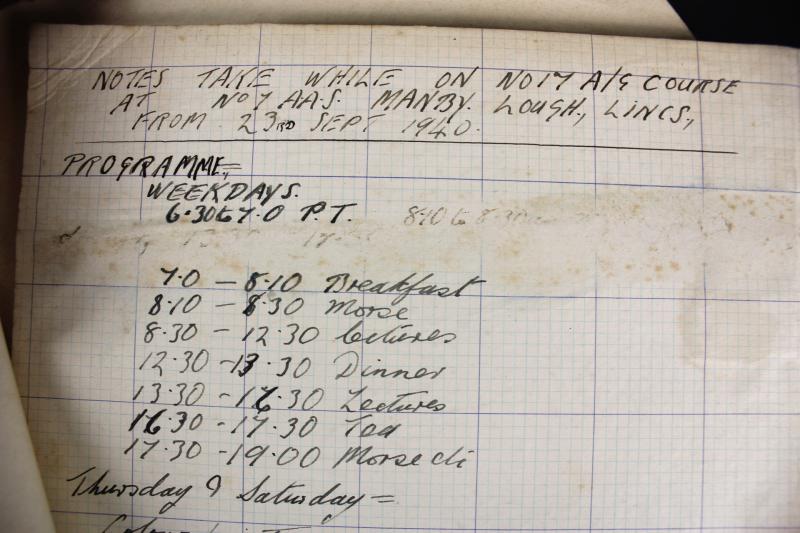 NOTES TAKE WHILE ON NO 17 A/G COURSE
AT No 7 A.A.S. MANBY. LOUGH., LINCS.,
FROM 23RD SEPT 1940.
PROGRAMME,
WEEKDAYS.
6.30 to 7.0 P.T. 8.10 to 8.30
7.0 - 8.10 Breakfast
8.10 - 8.30 Morse
8.30 - 12.30 Lectures
12.30 - 13.30 Dinner
13.30 - 16.30 Lectures
16.30 - 17.30 Tea
17.30 - 19.00 Morse
Thursday & Saturday =